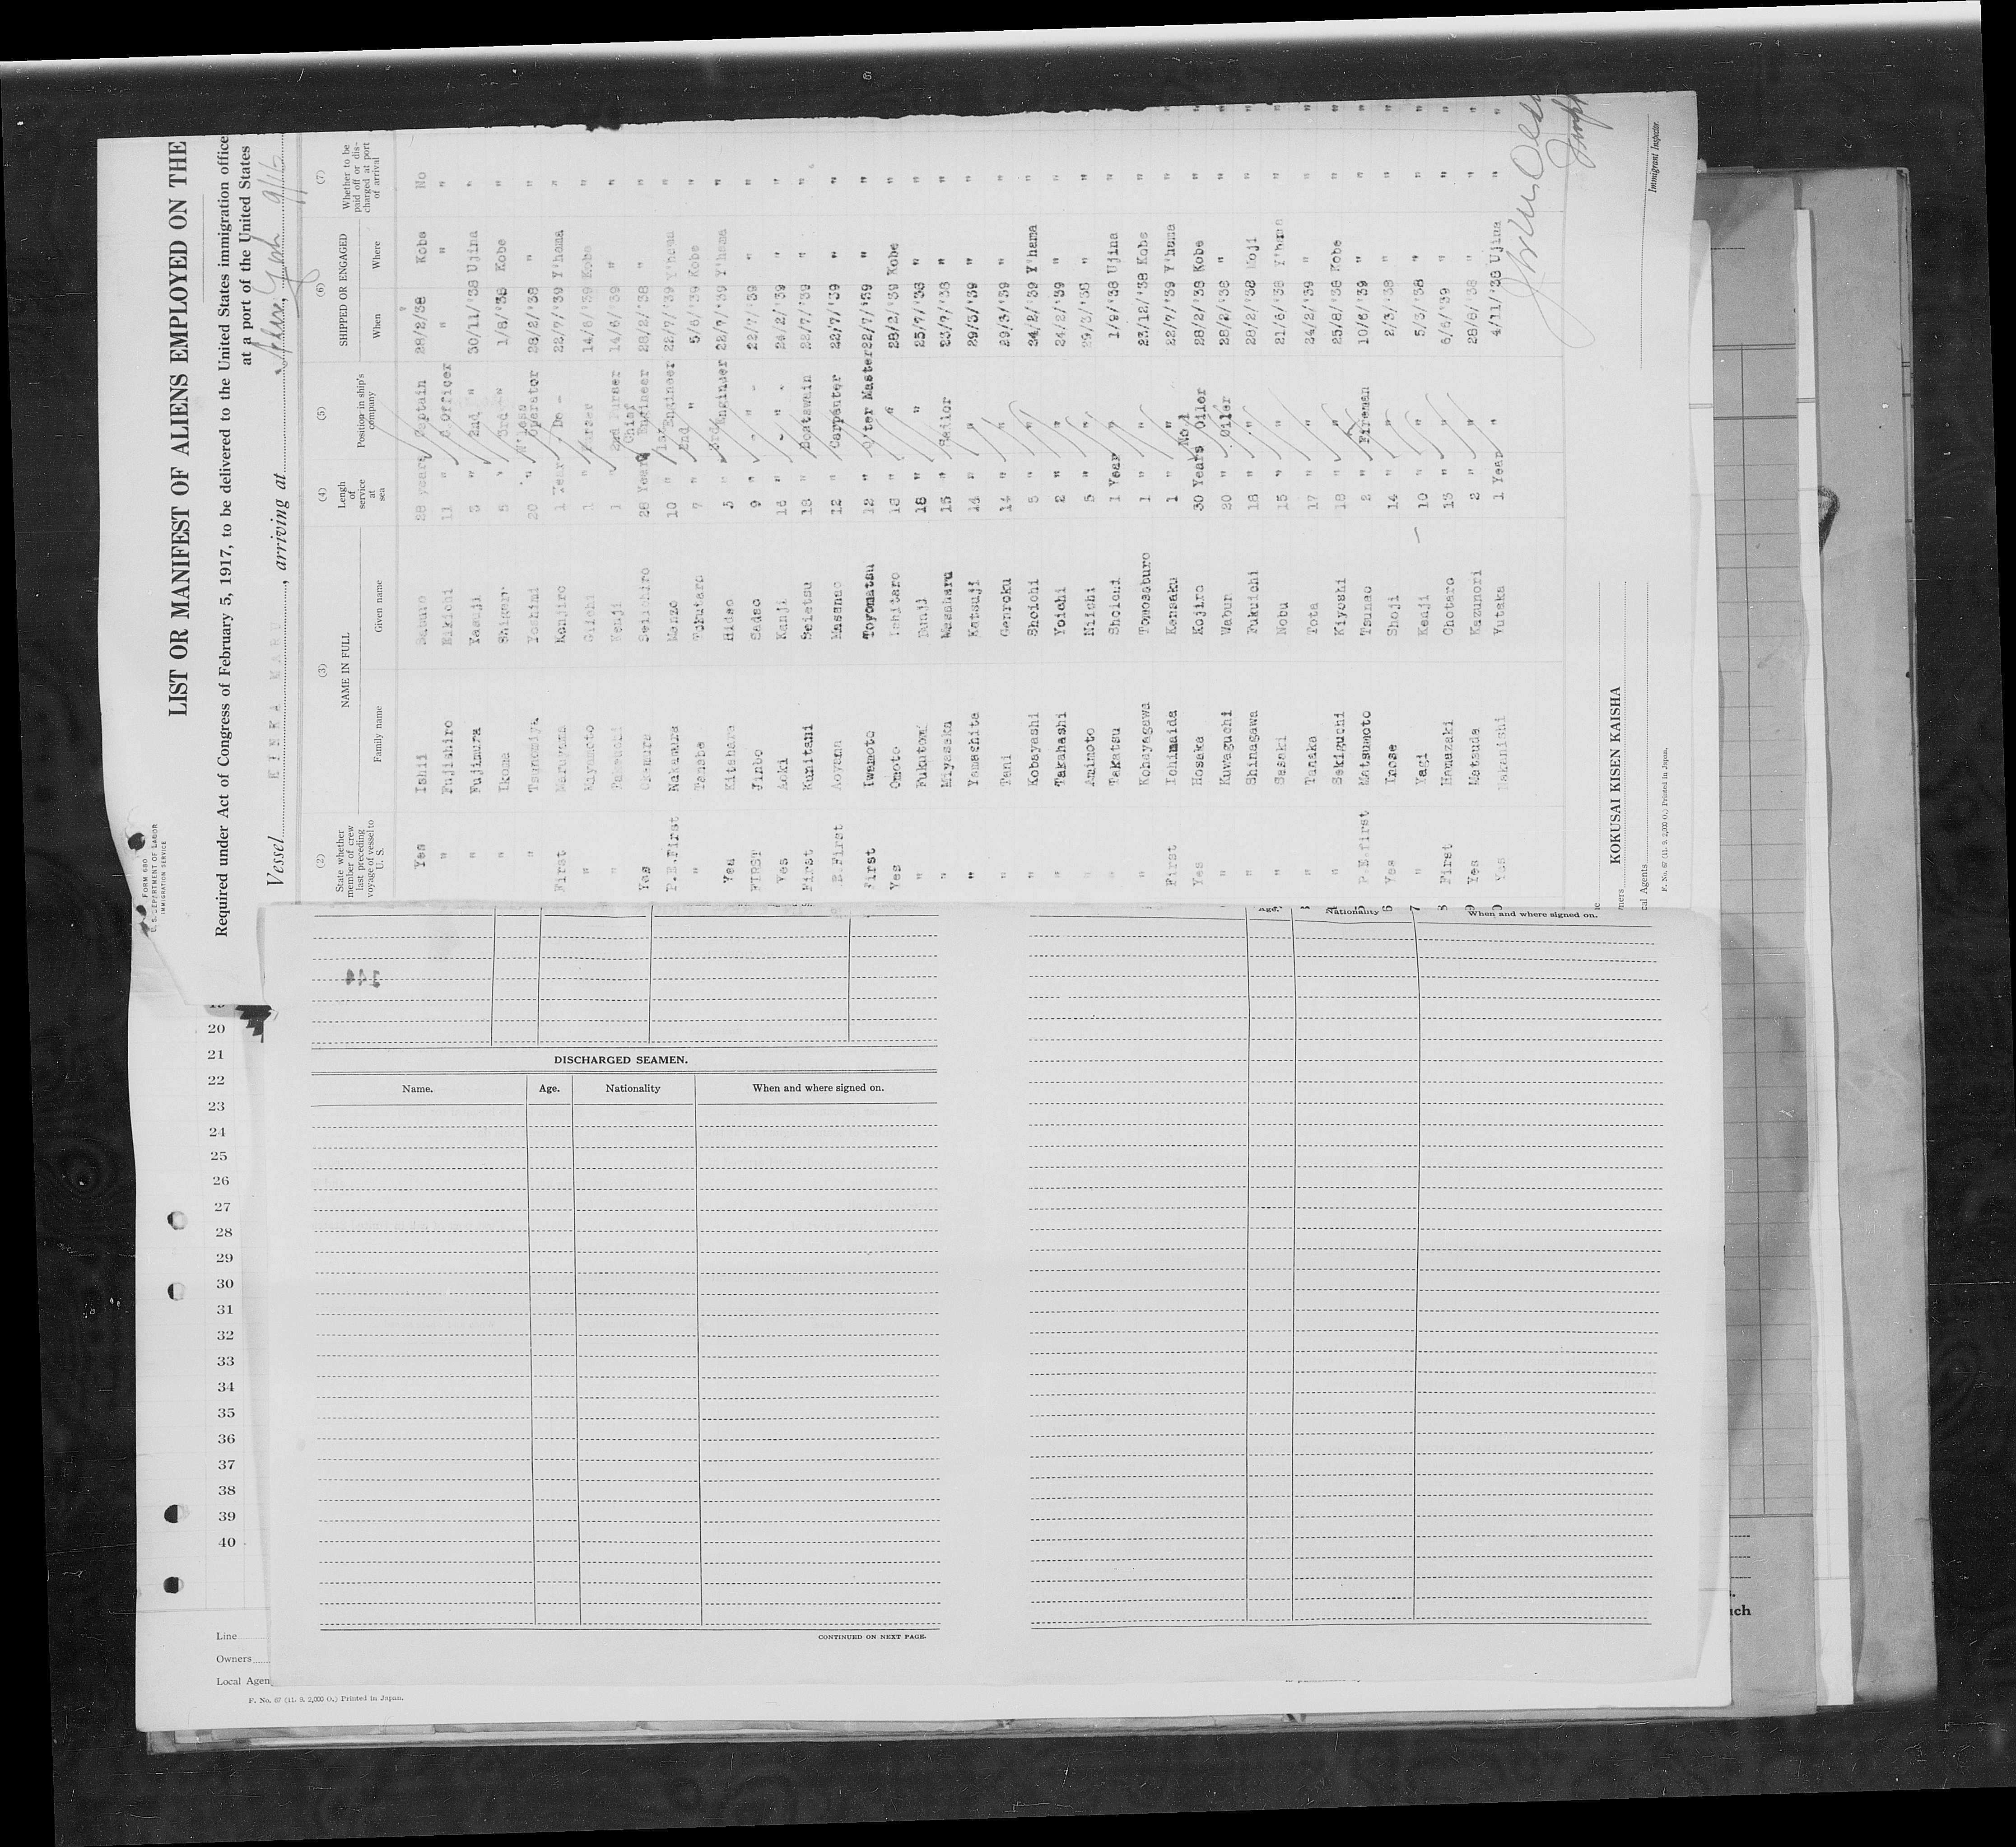 FORM 680
U. S. DEPARTMENT OF LABOR
IMMIGRATION SERVICE
LIST OR MANIFEST OF ALIENS EMPLOYED ON THE
Required under Act of Congress of February 5, 1917, to be delivered to the United States immigration office
at a port of the United States
Vessel KINKA MARU, arriving at
(2) (3) (4) (5) (6) (7)
State whether member of crew last preceding voyage of vessel to U. S. NAME IN FULL Lengh of service at sea Position in ship's company SHIPPED OR ENGAGED Whether to be paid off or discharged at port of arrival
Family name Given name When Where
Yes Ishii 28 years Captain 28/2/38 Kobe No
" Fujishiro Kikichi 11 " C.Officer " " "
" Fujimura Yasuji 3 " 2nd " 30/11/'38 Ujina "
" Ikoma 5 " 3rd " 1/8/'38 Kobe "
" Tsunomiya Yoshimi 20 " W'less Operator 28/2/'38 " "
First Maruyama Kenjiro 1 Year - Do - 22/7/'39 Y'hama "
" Miyamoto Giichi 1 " Purser 14/6/'39 Kobe "
" Kenji 1 2nd Purser 14/6/'39 " "
Yes Seiichiro 28 Years Chief Engineer 28/2/'38 " "
P.E.First Nakamura Manzo 10 " 1st Engineer 22/7/'39 Y'hama "
" Tanabe Tokutaro 7 " 2nd " 5/6/'39 Kobe "
Yes Kitahara Hideo 5 " 3rd Engineer 22/7/'39 Y'hama "
FIRST Jinbo Sadao 9 " - " - 22/7/'39 " "
Yes Aoki Kanji " - " - 24/2/'39 " "
First Kunitani Seietsu 18 " Boatswain 22/7/'39 " "
P.E.First Aoyama Masanao 12 " Carpenter 22/7/'39 " "
First Iwamoto Toyomatsu 12 " Q'ter Master 22/7/'39 " "
Yes Omoto Ishitaro 18 " " 28/2/'39 Kobe "
" Fukutomi Bunji 18 " " 25/7/'38 " "
" Miyasaka Masaharu 15 " Sailor 23/7/'38 " "
" Yamashita Katsuji 14 " " 29/3/'39 " "
" Tani Genroku 14 " " 29/3/'39 " "
" Kobayashi Shoichi 5 " " 24/2/'39 Y'hama "
" Takahashi Yoichi 2 " " 24/2/'39 " "
" Amimoto Niichi 5 " " 29/3/'38 " "
" Takatsu Shoichi 1 Year " 1/9/'38 Ujina "
" Kohayagawa Tomosaburo 1 " " 23/12/'38 Kobe "
First Ichimaida Kensaku 1 " " 22/7/'39 Y'hama "
Yes Hosaka Kojiro 30 Years No.1 Oiler 28/2/'38 Kobe "
" Kuwaguchi Wabun 20 " Oiler 28/2/'38 " "
" Shinagawa Fukuichi 18 " " 28/2/'38 Moji "
" Sasaki Nobu 15 " " 21/6/'38 Y'hama "
" Tanaka Tota 17 " " 24/2/'39 " "
" Sekiguchi Kiyoshi 18 " " 25/8/'38 Kobe "
P.E.first Matsumoto Tsunao 2 " Fireman 10/6/'39 " "
Yes Inose Shoji 14 " " 2/3/'38 " "
" Yagi Kenji 10 " " 5/3/'38 " "
First Hamazaki Chotaro 13 " " 6/6/'39 " "
Yes Matsuda Kazunori 2 " " 28/6/'38 " "
Yes Nakanishi Yutaka 1 Year " 4/11/'38 Ujina "
Immigrant Inspector.
KOKUSAI KISEN KAISHA
F. No. 67 (11. 9. 2,000 O.) Printed in Japan.
20
21
22
23
24
25
26
27
28
29
30
31
32
33
34
35
36
37
38
39
40
Line
Owners
Local Agen
F. No. 67 (11. 9. 2,000 O.) Printed in Japan.
DISCHARGED SEAMEN.
Name. Age. Nationality When and where signed on.
CONTINUED ON NEXT PAGE.
Age. Nationality When and where signed on.